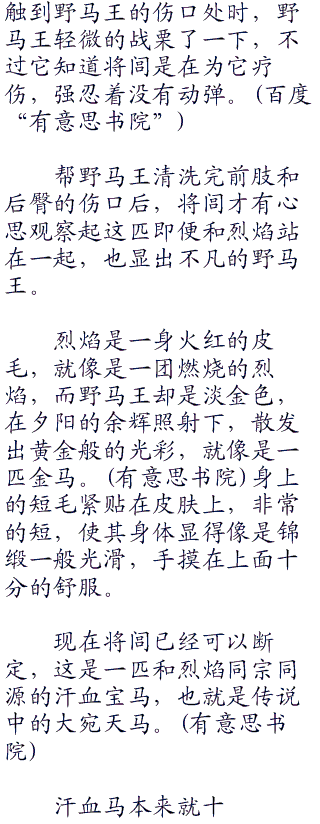 触到野马王的伤口处时，野
马王轻微的战栗了一下，不
过它知道将闾是在为它疗
伤，强忍着没有动弹。(百度
“有意思书院”)
帮野马王清洗完前肢和
后臀的伤口后，将闾才有心
思观察起这匹即便和烈焰站
在一起，也显出不凡的野马
王。
烈焰是一身火红的皮
毛，就像是一团燃烧的烈
焰，而野马王却是淡金色，
在夕阳的余辉照射下，散发
出黄金般的光彩，就像是一
匹金马。(有意思书院)身上
的短毛紧贴在皮肤上，非常
的短，使其身体显得像是锦
缎一般光滑，手摸在上面十
分的舒服。
现在将闾已经可以断
定，这是一匹和烈焰同宗同
源的汗血宝马，也就是传说
中的大宛天马。(有意思书
院)
汗血马本来就十